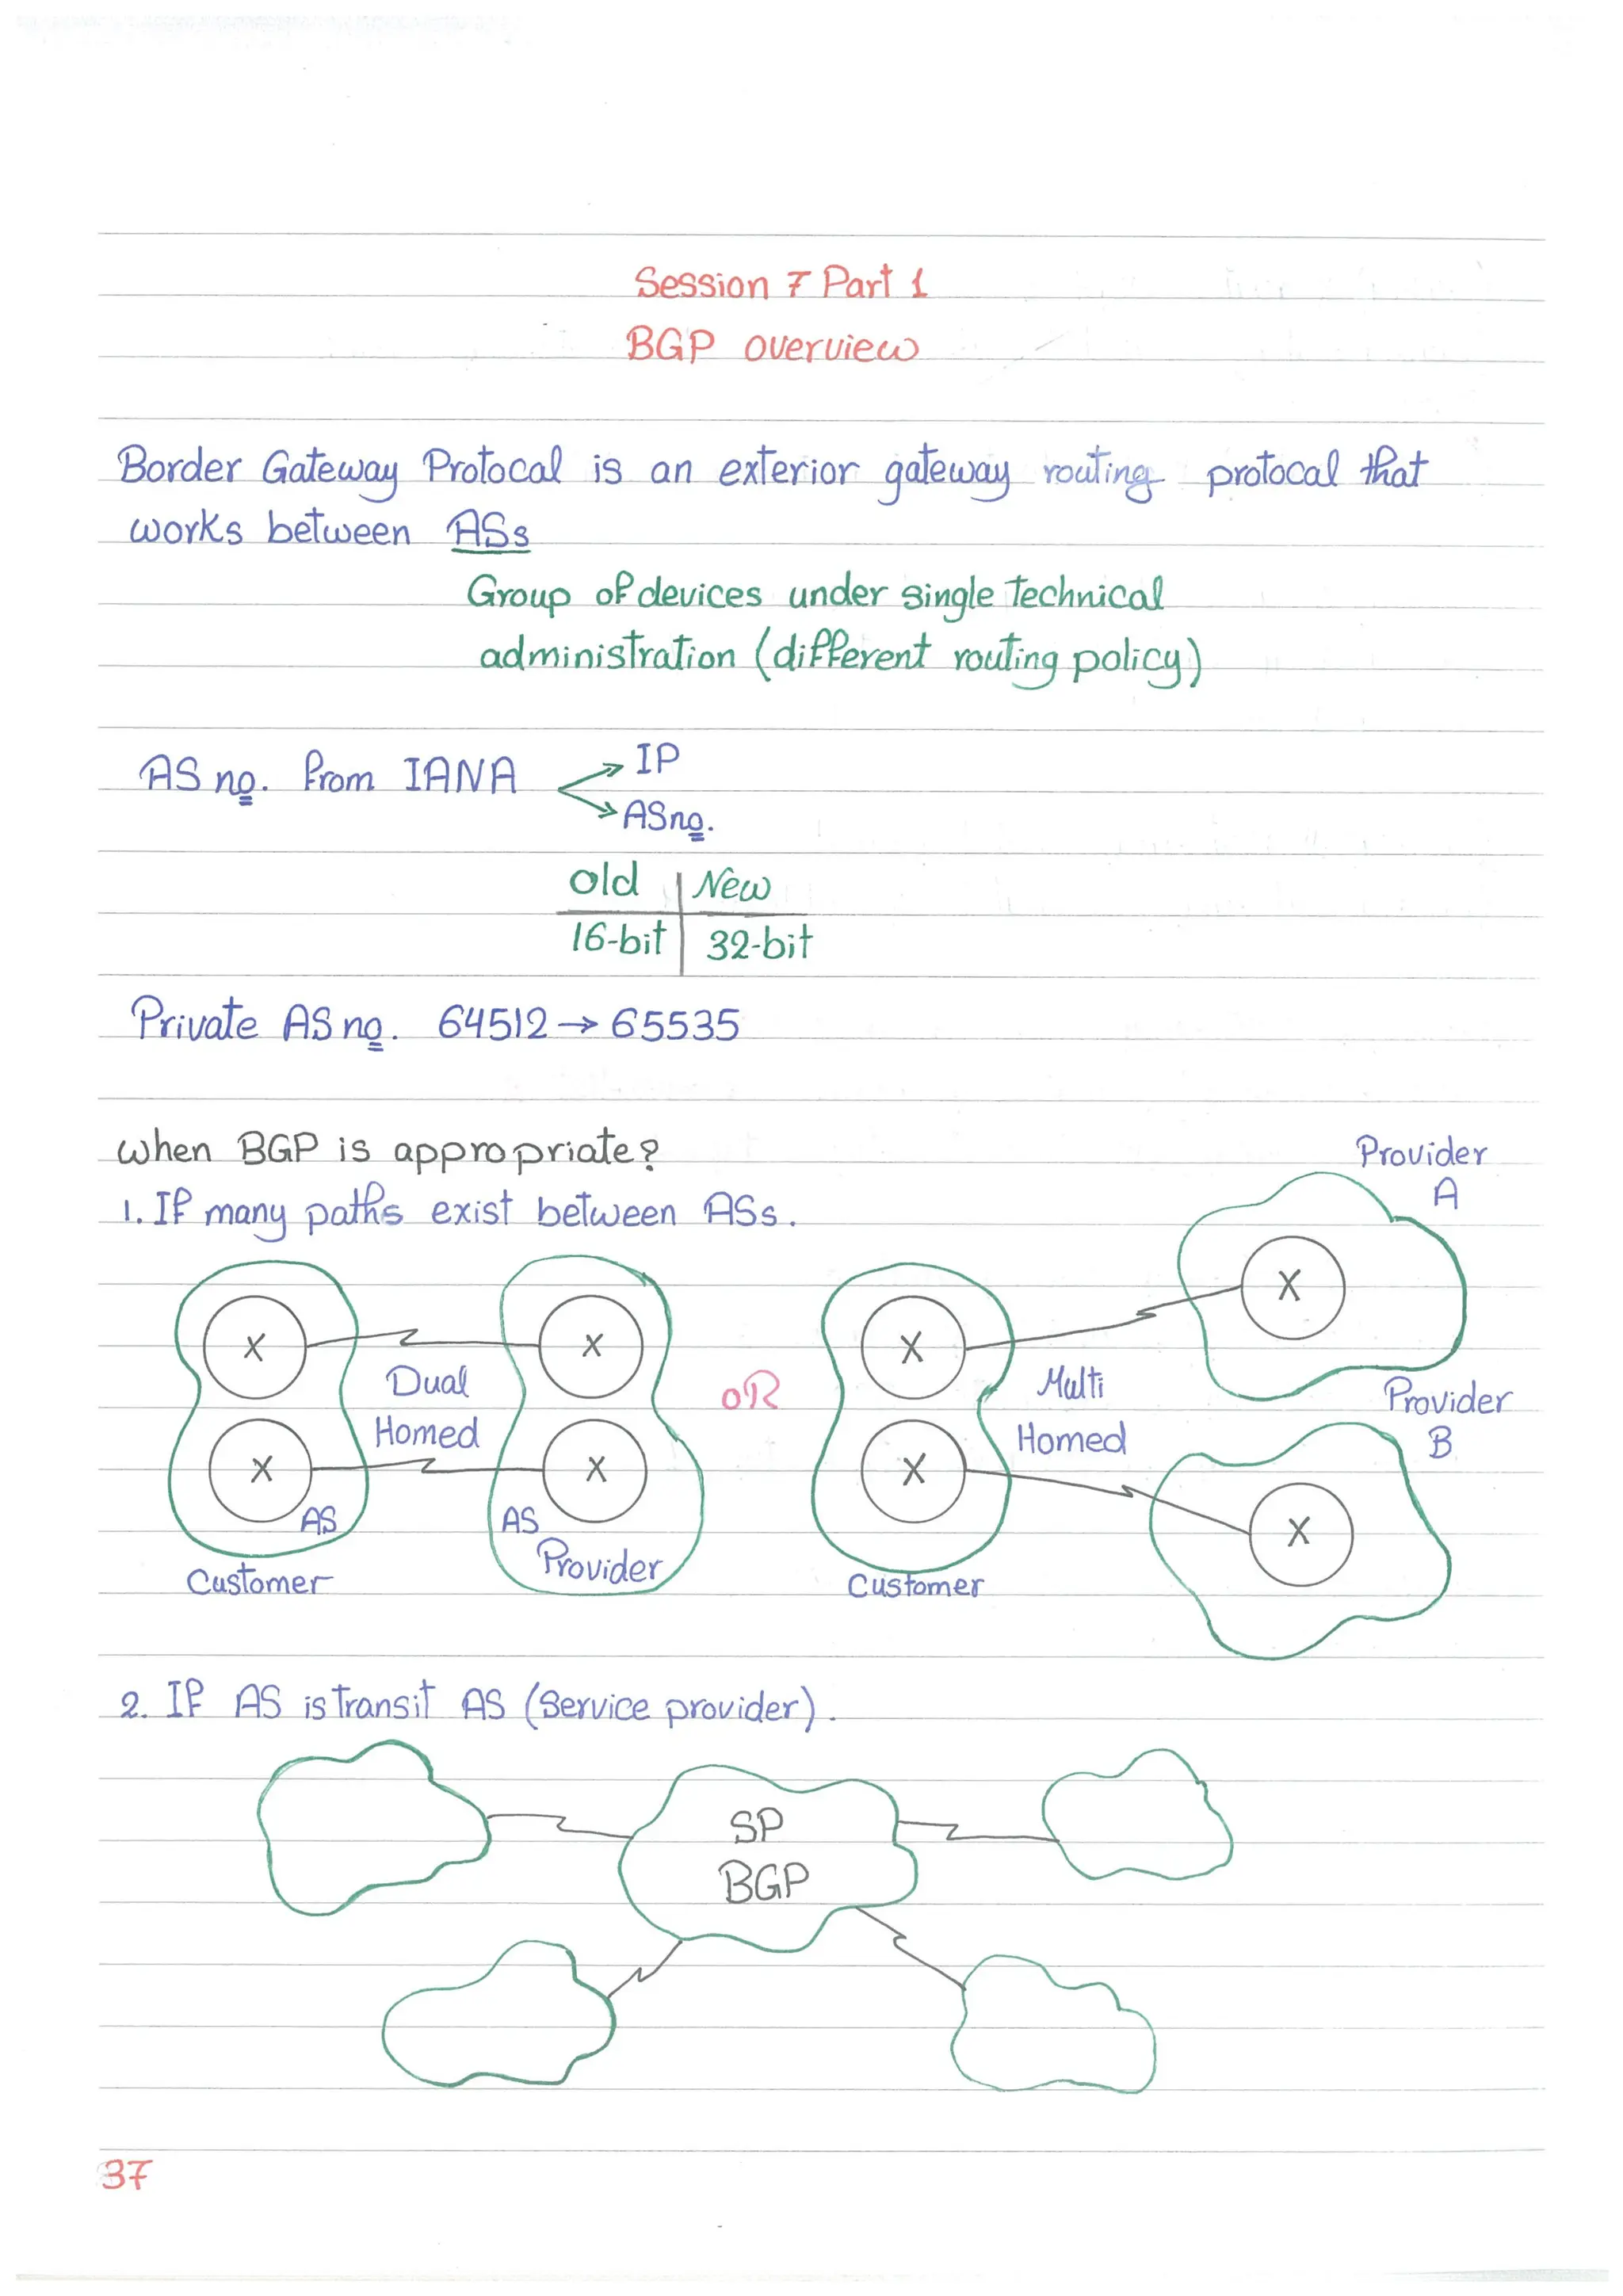 Session 7 Part 1
BGP overview
Border Gateway Protocal is an exterior gateway routing protocal that
works between ASs
Group of devices under single technical
administration (different routing policy)
AS no. from IANA
IP
AS no.
old New
16-bit 32-bit
Private AS no. 64512 → 65535
when BGP is appropriate?
1. If many paths exist between ASs.
Provider
A
X X X X
Dual
Homed
OR
Multi
Homed
Provider
B
X X X X
AS AS
Customer
Provider
Customer
2. If AS is transit AS (Service provider).
SP
BGP
37